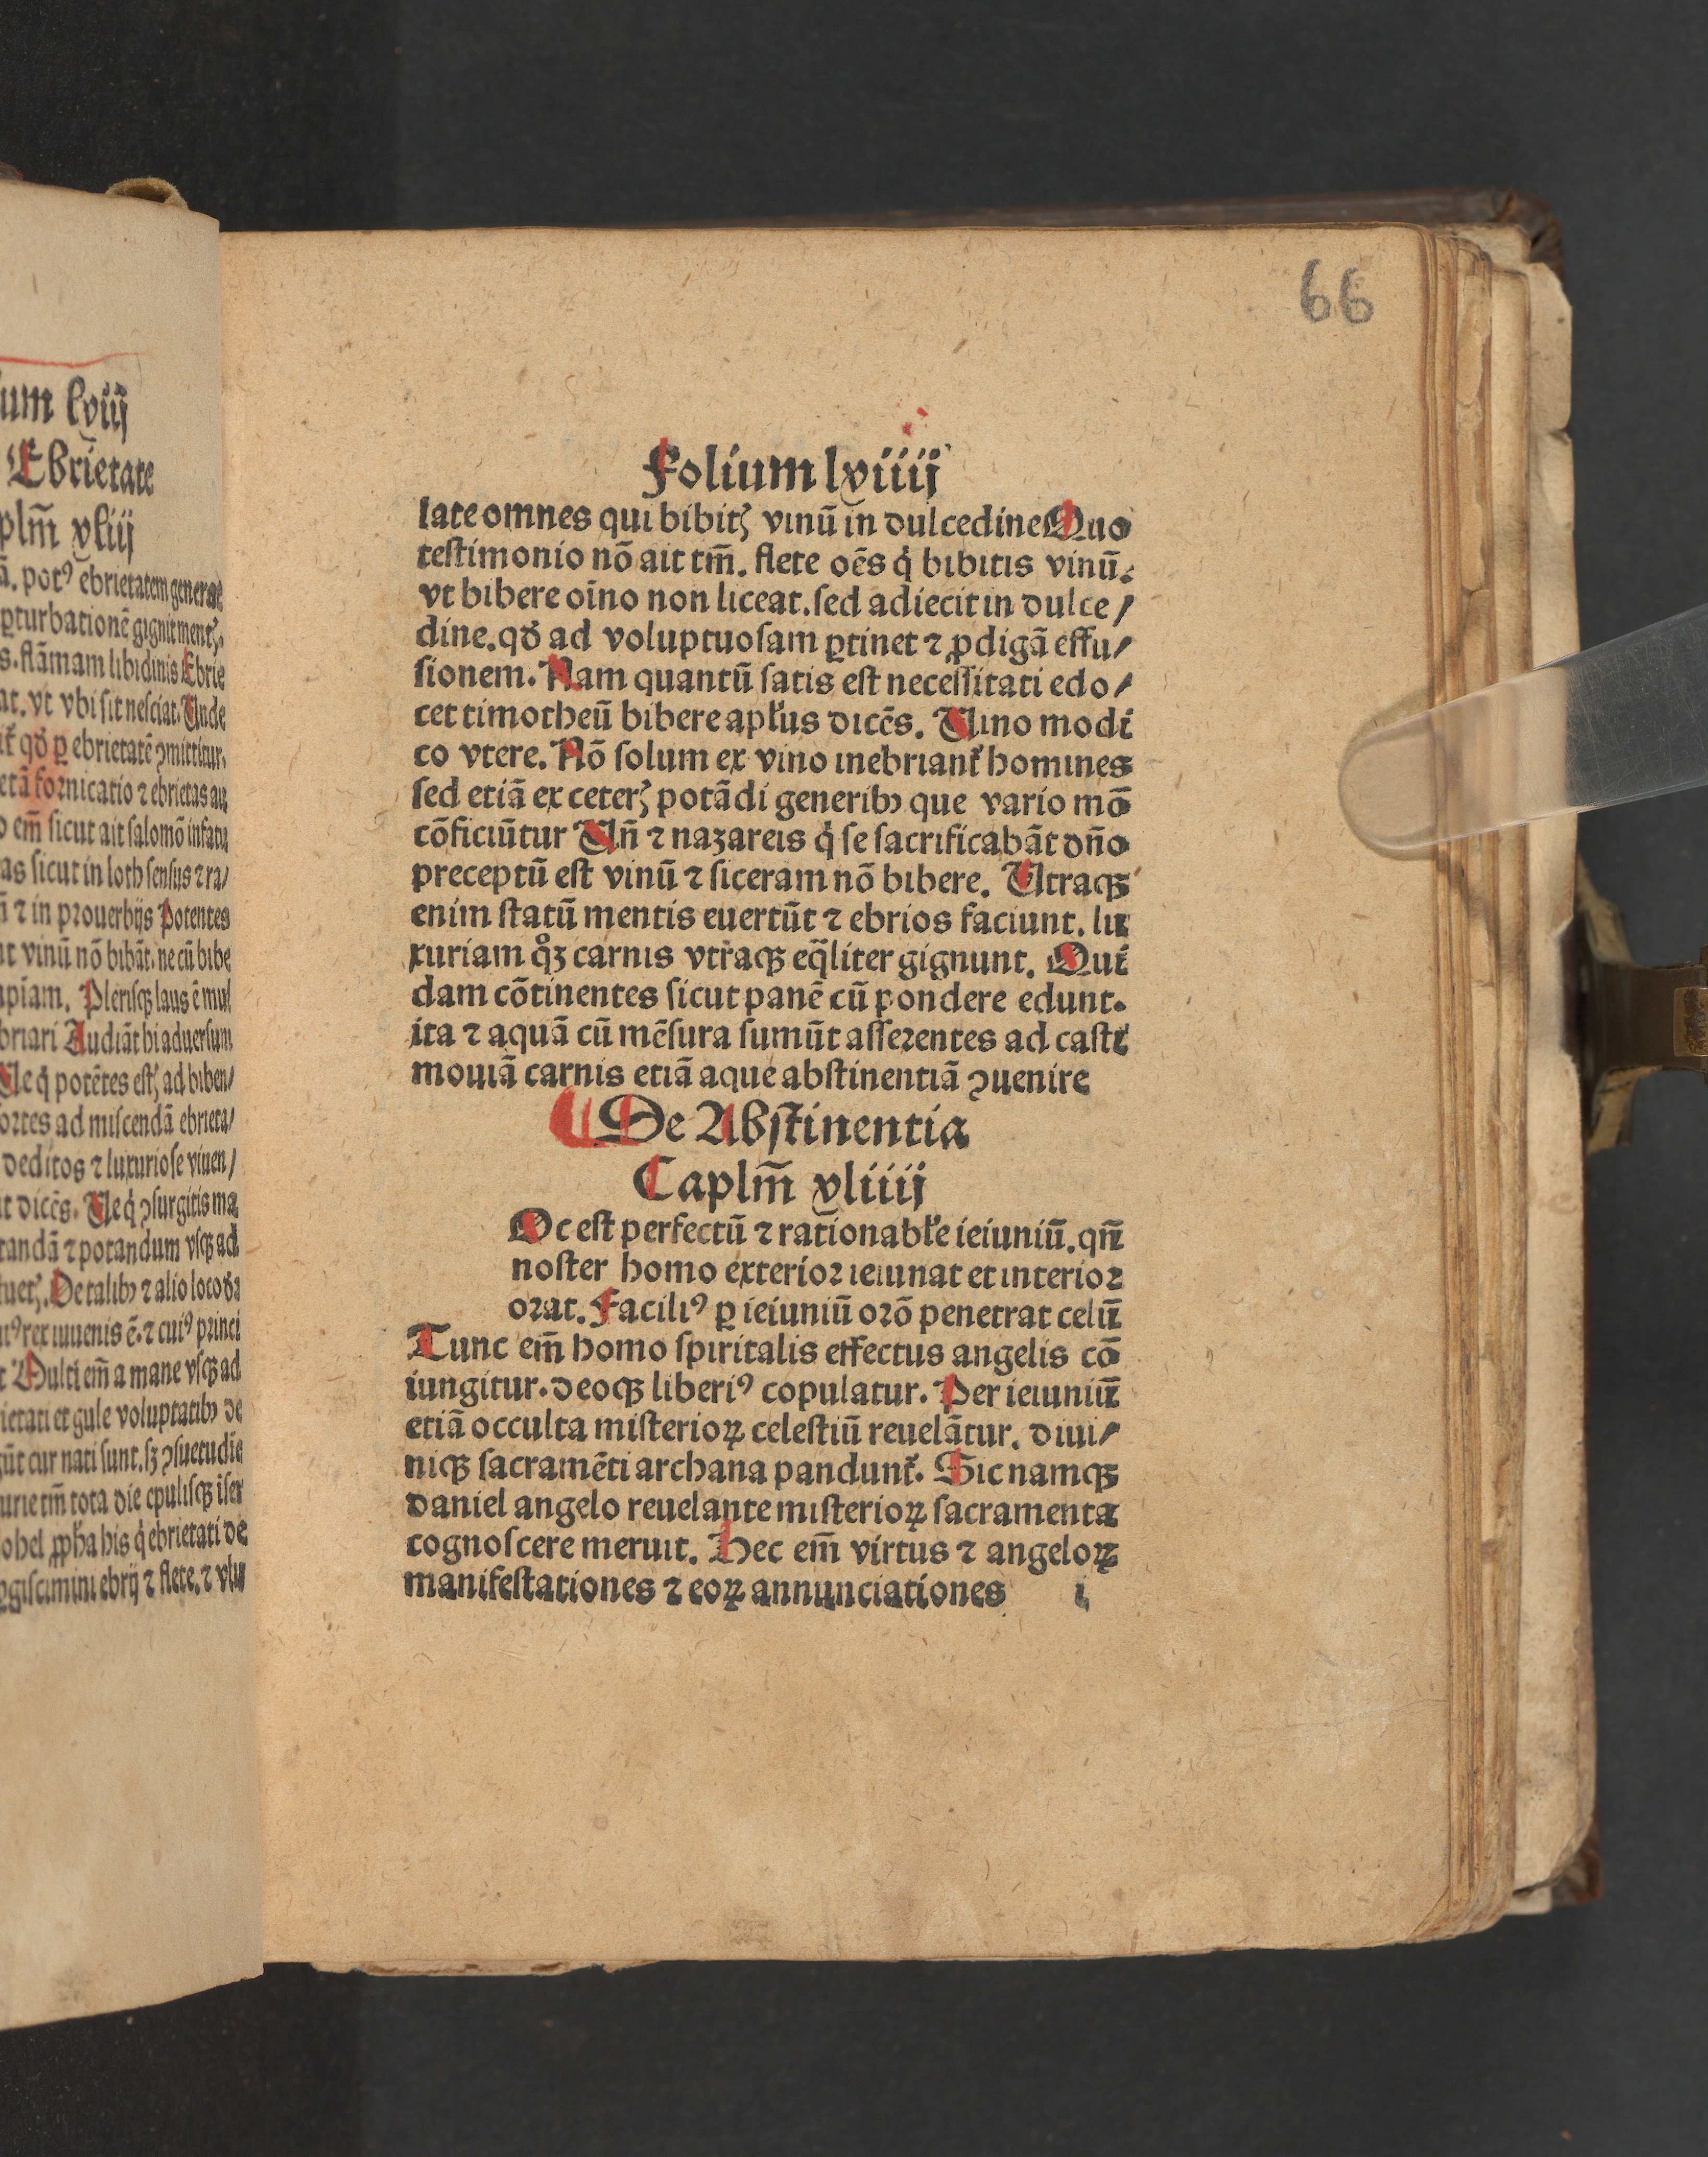 um lviij
Ebrietate
plm̄ xliij
ā. potꝰ ebrietatem generat
ꝑturbationē gignit mentꝭ.
s. flāmam libidinis Ebrie
at. vt vbi sit nesciat. Unde
qđ ꝑ ebrietatē ꝯmittitur.
etā fornicatio ⁊ ebrietas au
o em̄ sicut ait salomō infatu
as sicut in loth sensus ⁊ ra/
⁊ in prouerbijs Potentes
nt vinū nō bibāt. ne cū bibe
apiam. Plerisqꝫ laus ē mul
briari Audiāt hi aduersum
Ue q̇ potētes estꝭ ad biben/
ortes ad miscendā ebrieta/
deditos ⁊ luxuriose viuen/
it dicēs. Ue q̇ ꝯsurgitis ma
tandā ⁊ potandum vsqꝫ ad
tuetꝭ. De talibꝰ ⁊ alio loco
utꝰ rex iuuenis ē. ⁊ cuiꝰ princi
t Multi em̄ a mane vsqꝫ ad
ietati et gule voluptatibꝰ de
gūt cur nati sunt. sꝫ ꝯsuetudīe
urie tm̄ tota die epulisqꝫ iser
ohel ꝓpha his q̇ ebrietati de
ꝑgiscimini ebrij ⁊ flete. ⁊ vlu
66
Folium lviiij
late omnes qui bibitꝭ vinū in dulcedine Quo
testimonio nō ait tm̄. flete oēs q̇ bibitis vinū.
vt bibere oīno non liceat. sed adiecit in dulce/
dine. qđ ad voluptuosam ꝑtinet ⁊ ꝓdigā effu/
sionem. Nam quantū satis est necessitati edo/
cet timotheū bibere apl'us dicēs. Uino modi
co vtere. Nō solum ex vino inebriant᷑ homines
sed etiā ex ceterꝭ potādi generibꝰ que vario mō
cōficiūtur Un̄ ⁊ nazareis q̇ se sacrificabāt dn̄o
preceptū est vinū ⁊ siceram nō bibere. Utraqꝫ
enim statū mentis euertūt ⁊ ebrios faciunt. lu
xuriam qͦꝫ carnis vtraqꝫ eq̄liter gignunt. Qui
dam cōtinentes sicut panē cū pondere edunt.
ita ⁊ aquā cū mēsura sumūt asserentes ad casti
moniā carnis etiā aque abstinentiā ꝯuenire
De Abstinentia
Caplm̄ xliiij
Oc est perfectū ⁊ rationabl'e ieiuniū. qn̄
noster homo exterior ieiunat et interior
orat. Faciliꝰ ꝑ ieiuniū orō penetrat celū
Tunc em̄ homo spiritalis effectus angelis cō
iungitur. deoqꝫ liberiꝰ copulatur. Per ieiuniū
etiā occulta misterioꝝ celestiū reuelātur. diui/
niqꝫ sacramēti archana pandunt᷑. Sic namqꝫ
daniel angelo reuelante misterioꝝ sacramenta
cognoscere meruit. Hec em̄ virtus ⁊ angeloꝝ
manifestationes ⁊ eoꝝ annunciationes i